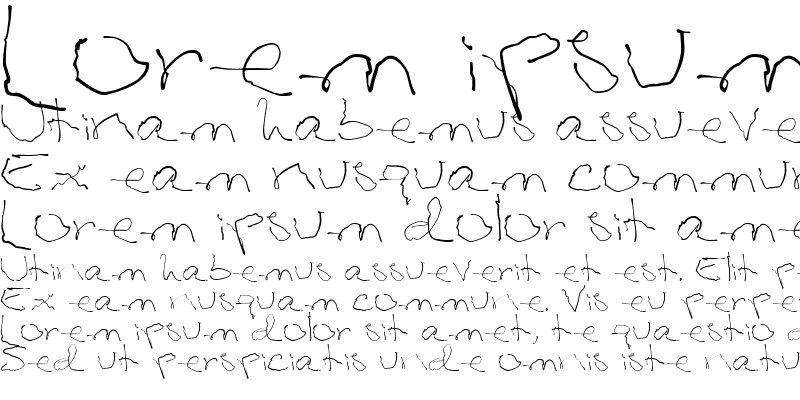 Lorem ipsum
Utinam habemus assueve
Ex eam nusquam commun
Lorem ipsum dolor sit ame
Utinam habemus assueverit et est. Elit p
Ex eam nusquam commune. Vis eu perpe
Lorem ipsum dolor sit amet, te quaestio d
Sed ut perspiciatis unde omnis iste natu